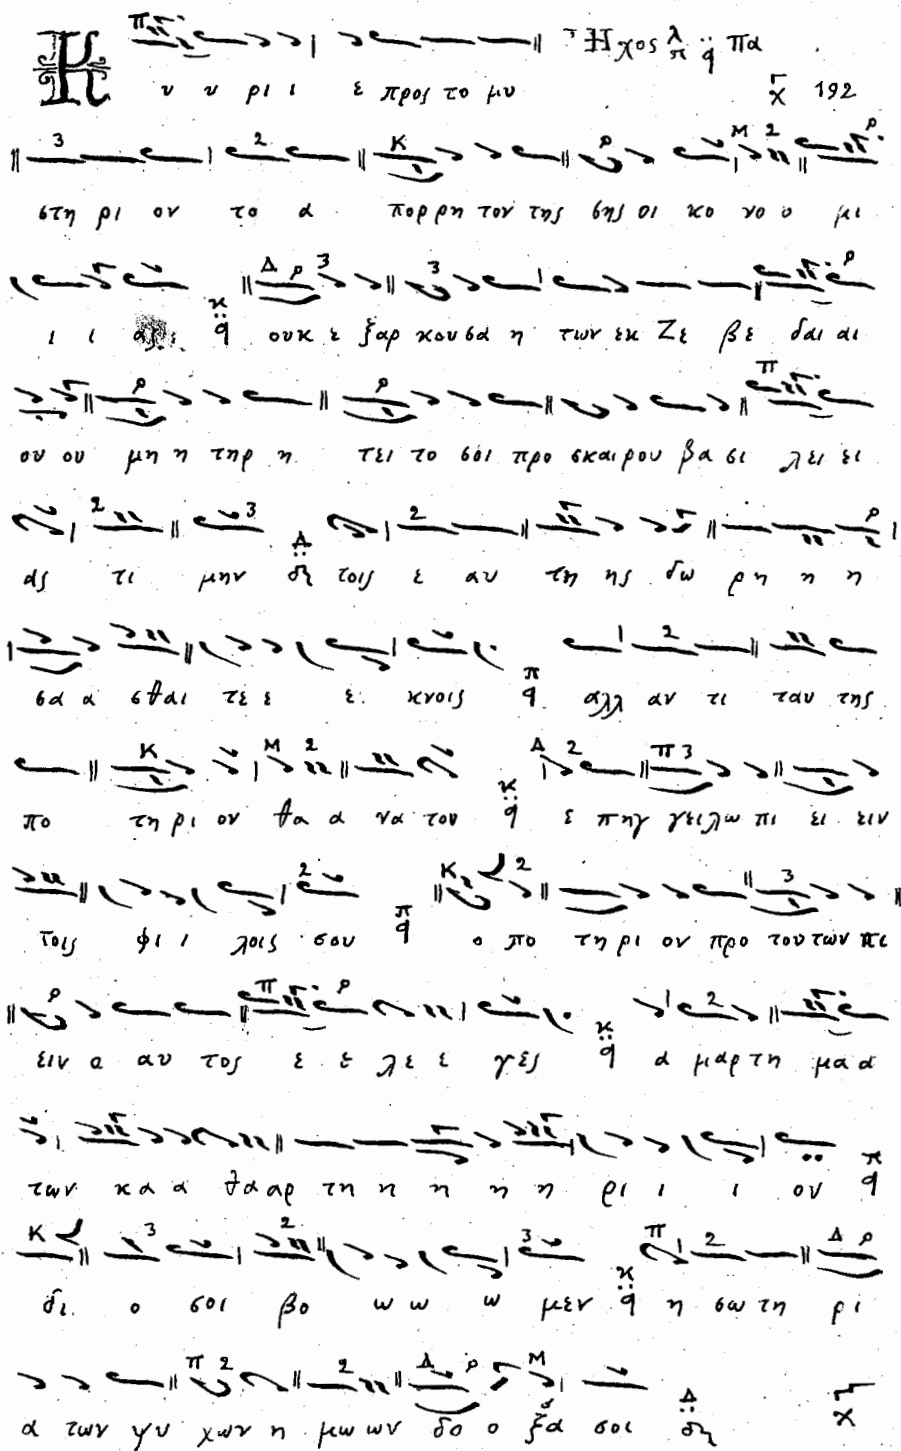 Κ υ υ ρι ι ε προς το μυ Ἦχος λ π q Πα χ 192
στη ρι ον το α πορ ρη τον της σης οι κο νο ο μι
ι ι ας q ουκ ε ξαρ κουσα η των εκ Ζε βε δαι αι
ου ου μη η τηρ η τει το σοι προ σκαιρου βα σι λει ει
ας τι μην δη τοις ε αυ τη ης δω ρη η η
σα α σθαι τε ε ε κνοις π q αλλ αν τι ταυ της
πο τη ρι ον θα α να του κ q ε πηγ γειλω πι ει ειν
τοις φι ι λοις σου π q ο πο τη ρι ον προ τουτων πι
ειν ο αυ τος ε ε λε ε γες κ q α μαρ τη μα α
των κα α θααρ τη η η η η ρι ι ι ον π q
δι ο σοι βο ω ω ω μεν κ q η σω τη ρι
α των ψυ χων η μω ων δο ο ξα σοι δη χ